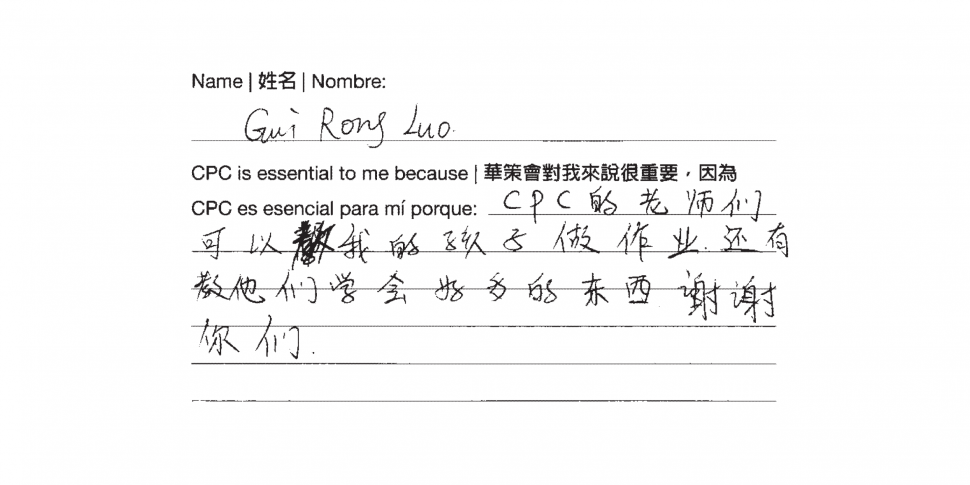 Name | 姓名 | Nombre:
Gui Rong Luo.
CPC is essential to me because | 華策會對我來說很重要，因為
CPC es esencial para mí porque: CPC的老师们
可以教我的孩子做作业.还有
教他们学会好多的东西谢谢
你们.